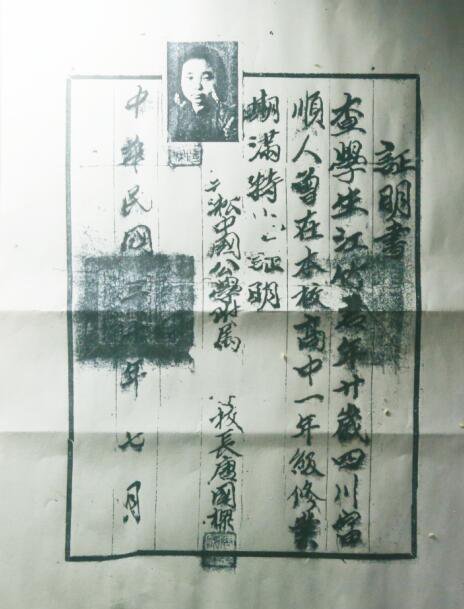 証明書
查學生江竹年廿歲四川富
順人曾在本校高中一年級修業
期滿特此証明
淞中國公學附属
校長唐國
中華民國二十年七月